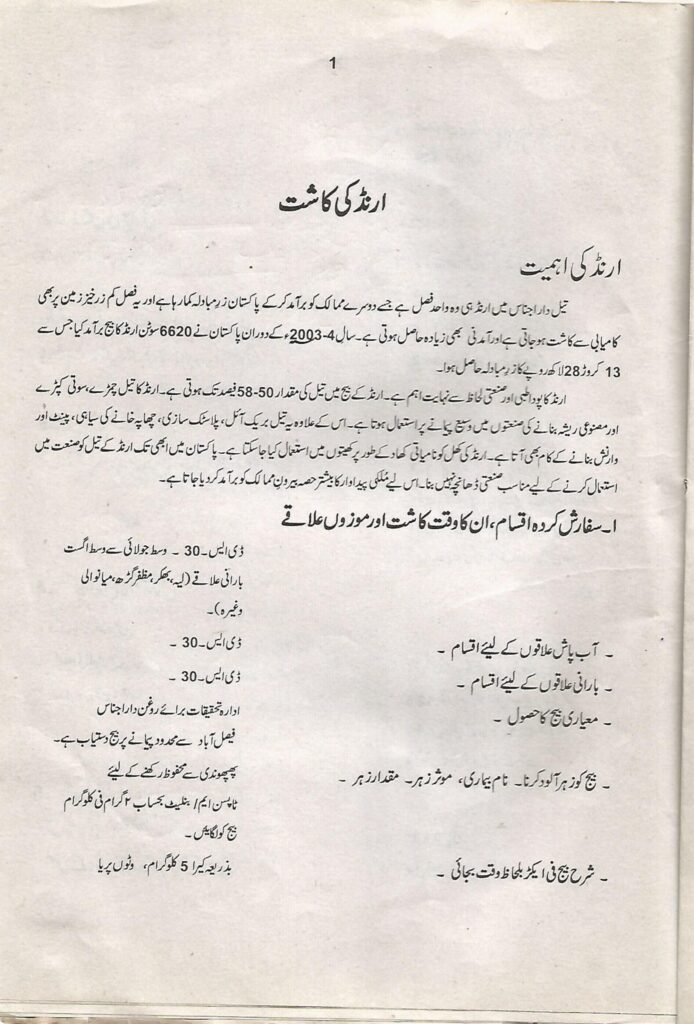 1
ارنڈ کی کاشت
ارنڈ کی اہمیت
تیل دار اجناس میں ارنڈ ہی وہ واحد فصل ہے جسے دوسرے ممالک کو برآمد کر کے پاکستان زرِ مبادلہ کما رہا ہے اور یہ فصل کم زرخیز زمین پر بھی
کامیابی سے کاشت ہو جاتی ہے اور آمدنی بھی زیادہ حاصل ہوتی ہے۔ سال 4-2003ء کے دوران پاکستان نے 6620 سو ٹن ارنڈ کا بیج برآمد کیا جس سے
13 کروڑ 28 لاکھ روپے کا زرِ مبادلہ حاصل ہوا۔
ارنڈ کا پودا طبی اور صنعتی لحاظ سے نہایت اہم ہے۔ ارنڈ کے بیج میں تیل کی مقدار 50-58 فیصد تک ہوتی ہے۔ ارنڈ کا تیل چمڑے، سوتی کپڑے
اور مصنوعی ریشہ بنانے کی صنعتوں میں وسیع پیمانے پر استعمال ہوتا ہے۔ اس کے علاوہ یہ تیل بریک آئل، پلاسٹک سازی، چھاپہ خانے کی سیاہی، پینٹ اور
وارنش بنانے کے کام بھی آتا ہے۔ ارنڈ کی کھل کو نامیاتی کھاد کے طور پر کھیتوں میں استعمال کیا جا سکتا ہے۔ پاکستان میں ابھی تک ارنڈ کے تیل کو صنعت میں
استعمال کرنے کے لیے مناسب صنعتی ڈھانچہ نہیں بنا۔ اس لیے مُلکی پیداوار کا بیشتر حصہ بیرونِ ممالک کو برآمد کر دیا جاتا ہے۔
ا۔ سفارش کردہ اقسام، ان کا وقت کاشت اور موزوں علاقے
ڈی ایس۔30 ۔ وسط جولائی سے وسط اگست
بارانی علاقے (لیہ، بھکر، مظفر گڑھ، میانوالی
وغیرہ)۔
۔ آب پاش علاقوں کے لیئے اقسام ۔ ڈی ایس۔30 ۔
۔ بارانی علاقوں کے لیئے اقسام ۔ ڈی ایس۔30 ۔
۔ معیاری بیج کا حصول ۔ ادارہ تحقیقات برائے روغن دار اجناس
فیصل آباد سے محدود پیمانے پر بیج دستیاب ہے۔
۔ بیج کو زہر آلود کرنا۔ نام بیماری، موثر زہر۔ مقدار زہر ۔ پھپھوندی سے محفوظ رکھنے کے لیئے
ٹاپسن ایم/ بنلیٹ بحساب ۲ گرام فی کلوگرام
بیج کو لگایئں۔
۔ شرح بیج فی ایکڑ بلحاظ وقت بجائی ۔ بذریعہ کیرا 5 کلوگرام، وٹوں پر یا